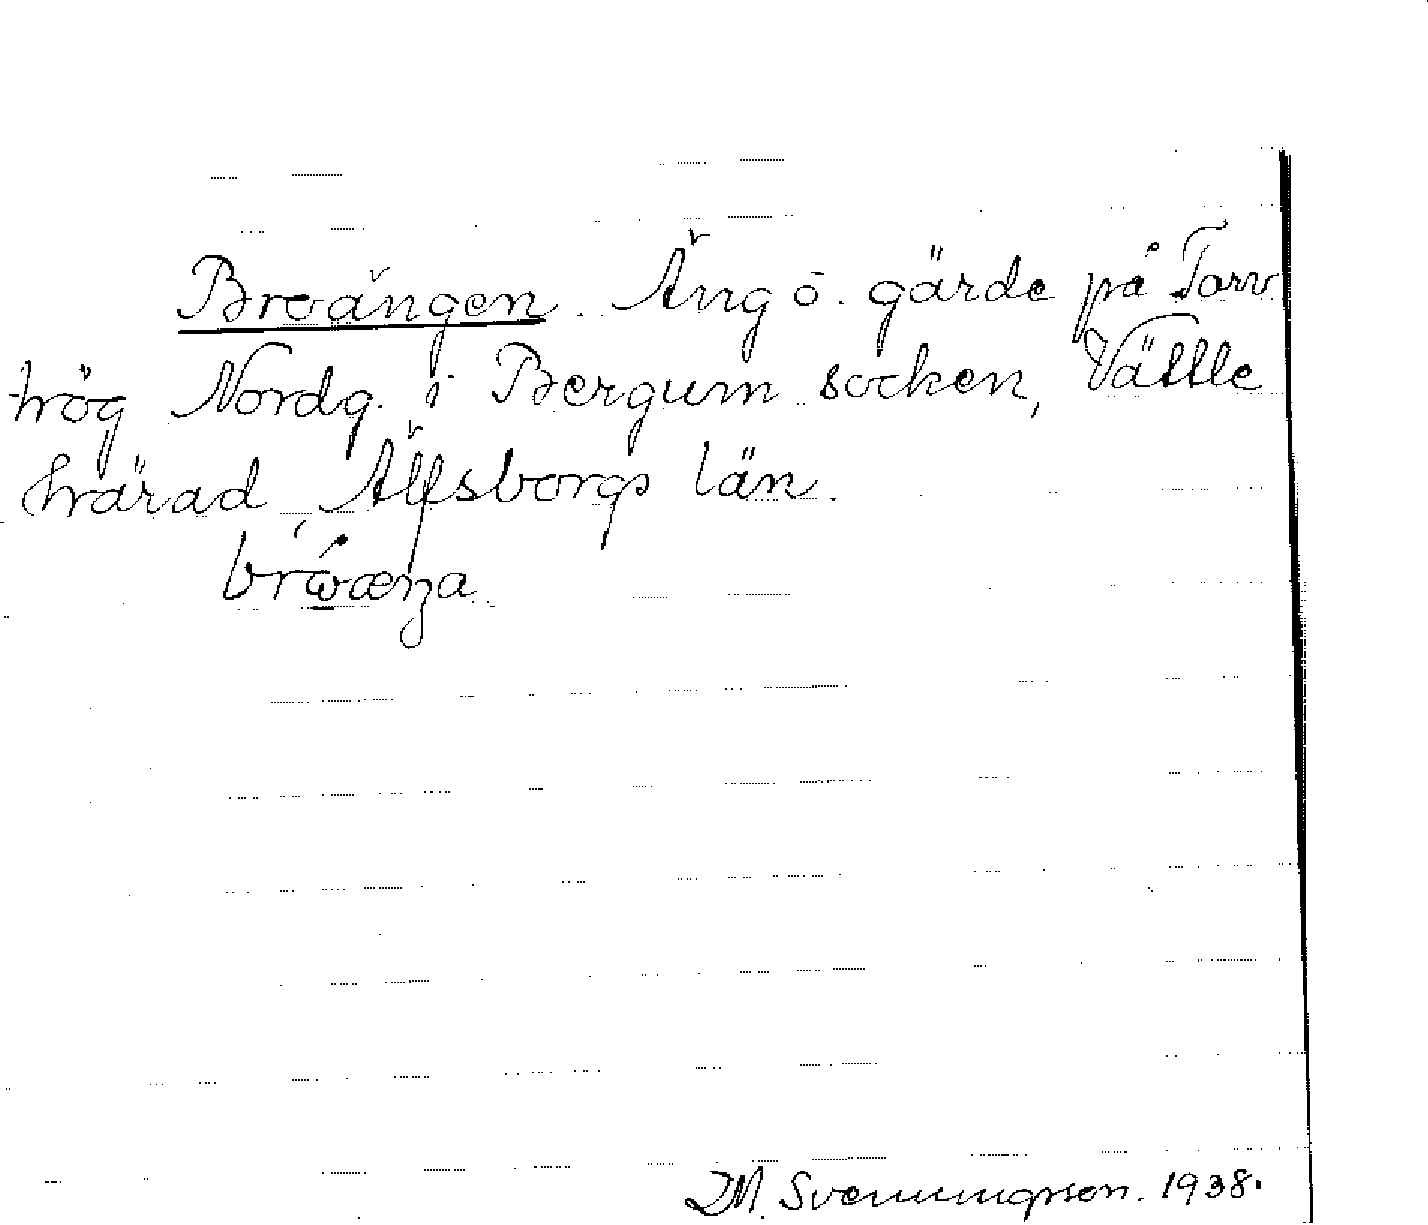 Broängen. Äng o. gärde på Torv
hög Nordg. i Bergum socken, Vättle
härad, Älfsborgs län.
D.M. Svenningson. 1938.